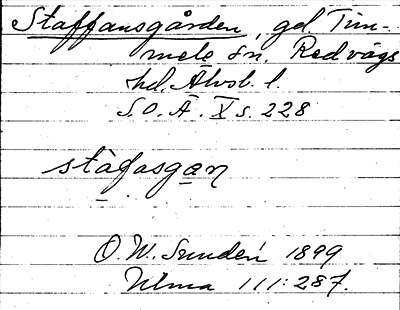 Staffansgården, gd. Tim-
mele sn. Redvägs
hd. Älvsb. l.
S.O.Ä. X s. 228
stàfasgan
O. W. Sundén 1899
Ulma 111:287.